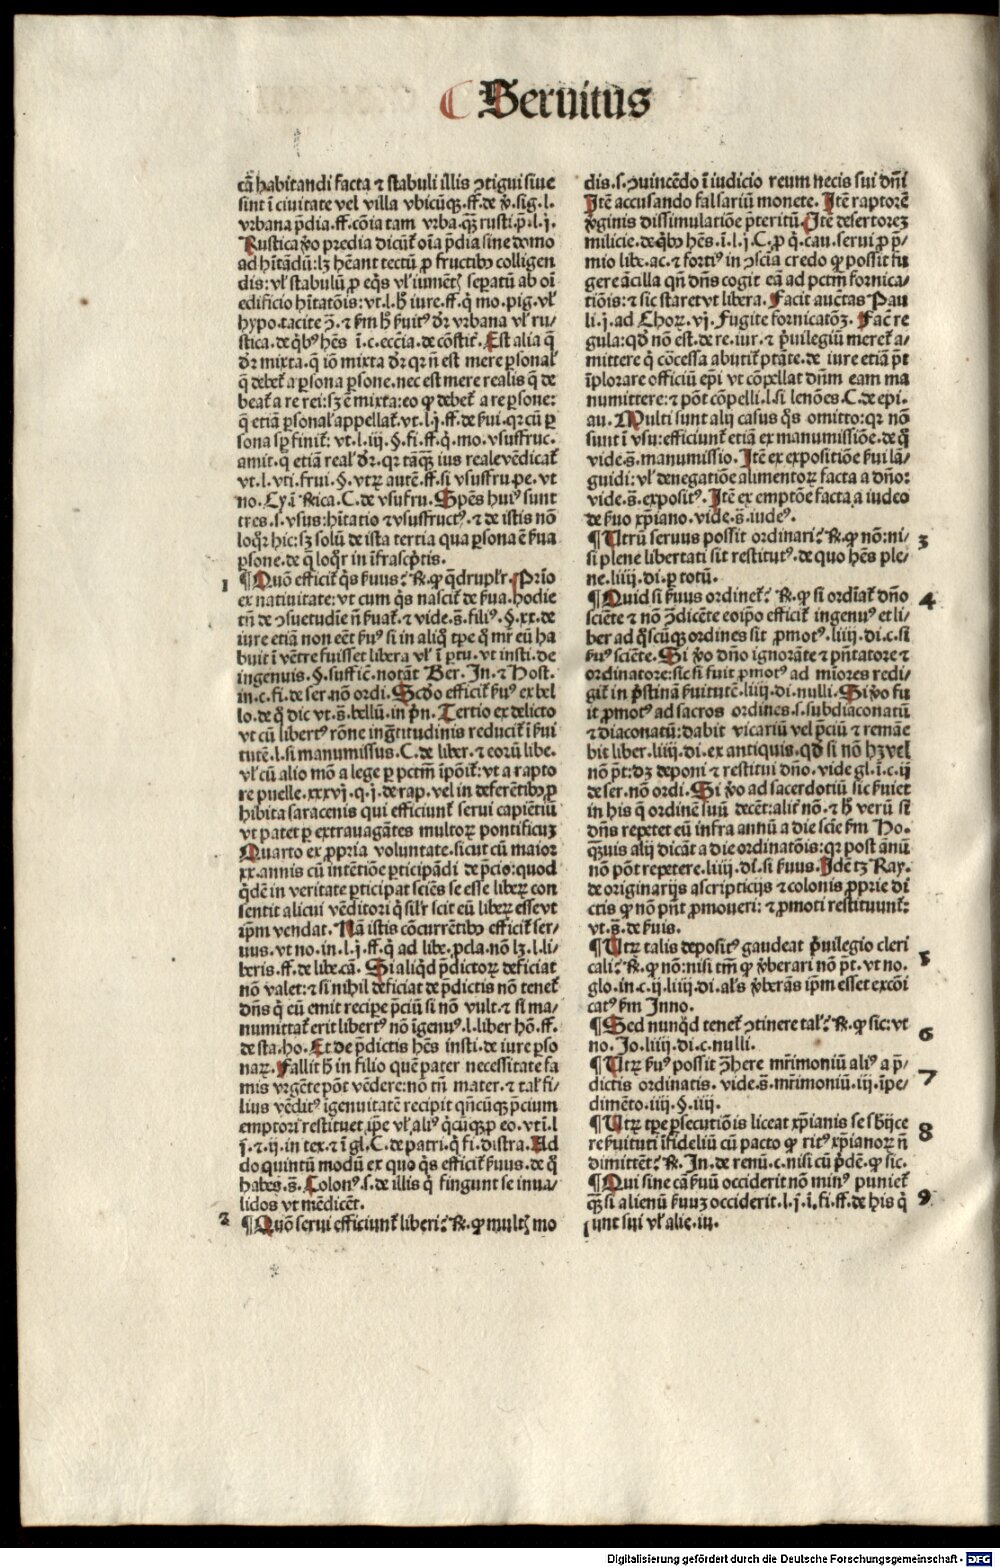 Seruitus
cā habitandi facta ⁊ stabuli illis ↄtigui siue
sint ī ciuitate vel villa vbicūqꝫ. ff. de ꝟ. sig. l.
vrbana p̄dia. ff. cōia tam vrba. qꝫ rusti. p̄. l. j.
Rustica ꝟo predia dicūt̄ oīa p̄dia sine domo
ad hītādū: lꝫ hēant tectū ꝓ fructibꝰ colligen
dis: vl̓ stabulū ꝓ eq̄s vl̓ iumēt̄ sepatū ab oī
edificio hītatōis: vt. l. hͦ iure. ff. q̄ mo. pig. vl̓
hypo. tacite ↄ̄. ⁊ ẜm hͦ ẜuitꝰ dr̄ vrbana vl̓ ru-
stica. de q̄bꝰ hēs ī. c. eccīa. de cōstit̄. Est alia q̄
dr̄ mixta. q̄ iō mixta dr̄ qꝛ n̄ est mere ꝑsonal̓
q̄ debet̄ a ꝑsona ꝑsone. nec est mere realis q̄ de
beat̄ a re rei: sꝫ ē mixta: eo ꝙ debet̄ a re ꝑsone:
q̄ etiā ꝑsonal̓ appellat̄. vt. l. j. ff. de ẜui. qꝛ cū ꝑ
sona sꝑ finit̄: vt. l. iij. §. fi. ff. q̄. mo. vsuffruc.
amit. q̄ etiā real̓ dr̄. qꝛ tāqꝫ ius reale vēdicat̄
vt. l. vti. frui. §. vtꝝ autē. ff. si vsuffru. pe. vt
no. Cyā Rica. C. de vsufru. Spēs huiꝰ sunt
tres. s. vsus: hītatio ⁊ vsuffructꝰ. ⁊ de istis nō
loq̄r hic: sꝫ solū de ista tertia qua ꝑsona ē ẜua
ꝑsone. de q̄ loq̄r in īfrascptis.
1 ¶ Quō efficit̄ q̄s ẜuus? ℟. ꝙ q̄drupl̓r. Prīo
ex natiuitate: vt cum q̄s nascit̄ de ẜua. hodie
tn̄ de ↄsuetudīe n̄ ẜuat̄. ⁊ vide. s̄. filiꝰ. §. xx. de
iure etiā non eēt ẜuꝰ si in aliq̄ tꝑe q̄ mr̄ eū ha
buit ī vētre fuisset libera vl̓ ī ꝑtu. vt insti. de
ingenuis. §. suffiē. notāt Ber. In. ⁊ Host.
in. c. fi. de ser. nō ordi. Scd̓o efficit̄ ẜuꝰ ex bel
lo. de q̄ dic vt. s̄. bellū. in p̄n. Tertio ex delicto
vt cū libertꝰ rōne ingtitudinis reducit̄ ī ẜui
tutē. l. si manumissus. C. de liber. ⁊ eorū libe.
vl̓ cū alio mō a lege ꝑ pctm̄ īpōit̄: vt a rapto
re puelle. xxxvj. q. j. de rap. vel in deferētibꝰ ꝓ
hibita saracenis qui efficiunt̄ serui capiētiū
vt patet ꝑ extrauagātes multoꝝ pontificuꝫ
Quarto ex ꝓpria voluntate. sicut cū maior
xx. annis cū intētiōe ꝑticipādi de p̄cio: quod
q̄dē in veritate ꝑticipat sciēs se esse liberꝝ con
sentit alicui vēditori q̄ sil̓r scit eū liberꝝ esse vt
ip̄m vendat. Nā istis cōcurrētibꝰ efficit̄ ser-
uus. vt no. in. l. j. ff. q̄ ad libe. ꝓcla. nō lꝫ. l. li-
beris. ff. de libe. cā. Si aliq̄d p̄dictoꝝ deficiat
nō valet: ⁊ si nihil deficiat de p̄dictis nō tenet̄
dn̄s q̄ eū emit recipe p̄ciū si nō vult. ⁊ si ma-
numittat̄ erit libertꝰ nō īgenuꝰ. l. liber hō. ff.
de sta. ho. Et de p̄dictis hēs insti. de iure ꝑso
naꝝ. Fallit hͦ in filio quē pater necessitate fa
mis vrgēte pōt vēdere: nō tn̄ mater. ⁊ tal̓ fi-
lius vēditꝰ īgenuitatē recipit qn̄cūqꝫ p̄cium
emptori restituet ip̄e vl̓ aliꝰ q̄cūqꝫ ꝓ eo. vt ī. l
j̄. ⁊. ij. in tex. ⁊ ī gl. C. de patri. q̄ fi. distra. Ad
do quintū modū ex quo q̄s efficit̄ ẜuus. de q̄
habes. s̄. Colonꝰ. s. de illis q̄ fingunt se inua-
lidos vt mēdicēt.
2 ¶ Quō serui efficiunt̄ liberi? ℟. ꝙ mult̄ mo
dis. s. ↄuincēdo ī iudicio reum necis sui dn̄i
Itē accusando falsariū monete. Itē raptorē
ꝟginis dissimulatiōe p̄teritū. Itē desertoreꝫ
milicie. de q̄bꝰ hēs. ī. l. j. C. ꝓ q̄. cau. serui ꝓ p̄-
mio libe. ac. ⁊ fortiꝰ in ↄscīa credo ꝙ possit fu
gere ācilla qn̄ dn̄s cogit eā ad pctm̄ fornica-
tiōis: ⁊ sic staret vt libera. Facit auctas Pau
li. j. ad Choꝝ. vj. Fugite fornicatōꝫ. Fac̄ re
gula: qd̓ nō est. de re. iur. ⁊ p̄uilegiū meret̄ a-
mittere q̄ cōcessa abutit̄ ptāte. de iure etiā p̄t
īplorare officiū ep̄i vt cōpellat dn̄m eam ma
numittere: ⁊ pōt cōpelli. l. si lenōes. C. de epi.
au. Multi sunt alij casus q̄s omitto: qꝛ nō
sunt ī vsu: efficiunt̄ etiā ex manumissiōe. de q̄
vide. s̄. manumissio. Itē ex expositiōe ẜui lā-
guidi: vl̓ denegatiōe alimentoꝝ facta a dn̄o:
vide. s̄. expositꝰ. Itē ex emptōe facta a iudeo
de ẜuo xp̄iano. vide. s̄. iudeꝰ.
¶ Utrū seruus possit ordinari? ℟. ꝙ nō: ni- 3
si plene libertati sit restitutꝰ. de quo hēs ple-
ne. liiij. di. ꝑ totū.
¶ Quid si ẜuus ordinet̄? ℟. ꝙ si ordīat̄ dn̄o 4
sciēte ⁊ nō ↄ̄dicēte eoip̄o efficit̄ ingenuꝰ et li-
ber ad q̄scūqꝫ ordines sit ꝓmotꝰ. liiij. di. c. si
ẜuꝰ sciēte. Si ꝟo dn̄o ignorāte ⁊ pn̄tatore ⁊
ordinatore: sic si fuit ꝓmotꝰ ad mīores redi-
git̄ in p̄stinā ẜuitutē. liiij. di. nulli. Si ꝟo fu
it ꝓmotꝰ ad sacros ordines. s. subdiaconatū
⁊ diaconatū: dabit vicariū vel p̄ciū ⁊ remāe
bit liber. liiij. di. ex antiquis. qd̓ si nō hꝫ vel
nō p̄t: dꝫ deponi ⁊ restitui dn̄o. vide gl. ī. c. ij
de ser. nō ordi. Si ꝟo ad sacerdotiū sic ẜuiet
in his q̄ ordinē suū decēt: alit̓ nō. ⁊ hͦ verū si
dn̄s repetet eū infra annū a die scīe ẜm Ho.
qꝫuis alij dicāt a die ordinatōis: qꝛ post ānū
nō pōt repetere. liiij. di. si ẜuus. Idē tꝫ Ray.
de originarijs ascripticijs ⁊ colonis ꝓprie di
ctis ꝙ nō pn̄t ꝓmoueri: ⁊ ꝓmoti restituunt̄:
vt. s̄. de ẜuis.
¶ Utꝝ talis depositꝰ gaudeat p̄uilegio cleri 5
cali? ℟. ꝙ nō: nisi tm̄ ꝙ ꝟberari nō p̄t. vt no.
glo. in. c. ij. liiij. di. al̓s ꝟberās ip̄m esset excōi
catꝰ ẜm Inno.
¶ Sed nunq̄d tenet̄ ↄtinere tal̓? ℟. ꝙ sic: vt 6
no. Jo. liiij. di. c. nulli.
¶ Utꝝ ẜuꝰ possit ↄ̄here mr̄imoniū aliꝰ a p̄- 7
dictis ordinatis. vide. s̄. mr̄imoniū. iij. īpe-
dimēto. iiij. §. iiij.
¶ Utꝝ tꝑe ꝑsecutiōis liceat xp̄ianis se sbijce 8
re ẜuituti īfideliū cū pacto ꝙ ritꝰ xp̄ianoꝝ n̄
dimittēt? ℟. In. de renū. c. nisi cū p̄dē. ꝙ sic.
¶ Qui sine cā ẜuū occiderit nō minꝰ puniet̄ 9
qꝫ si alienū ẜuuꝫ occiderit. l. j. ī. fi. ff. de his q̄
sunt sui vl̓ alie. iu.
Digitalisierung gefördert durch die Deutsche Forschungsgemeinschaft - DFG